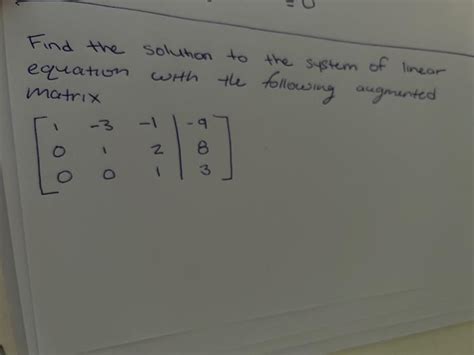 = 0
Find the solution to the system of linear
equation with the following augmented
matrix
[ 1 -3 -1 | -9 ]
[ 0 1 2 | 8 ]
[ 0 0 1 | 3 ]